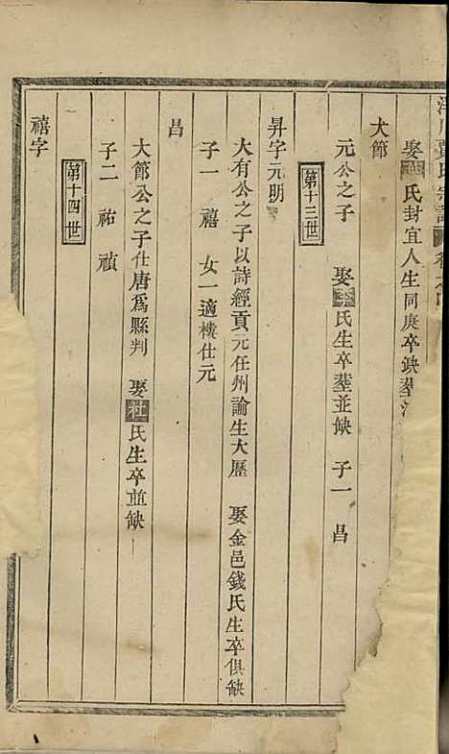 氏宗譜
娶氏封宜人生同庚卒缺葬
大節
元公之子　娶李氏生卒塟並缺　子一　昌
第十三世
昇字元明
大有公之子以詩經貢元任州諭生大歷　娶金邑錢氏生卒俱缺
子一　禧　女一適樓仕元
昌
大節公之子仕唐爲縣判　娶杜氏生卒並缺
子二　祐　禎
第十四世
禧字